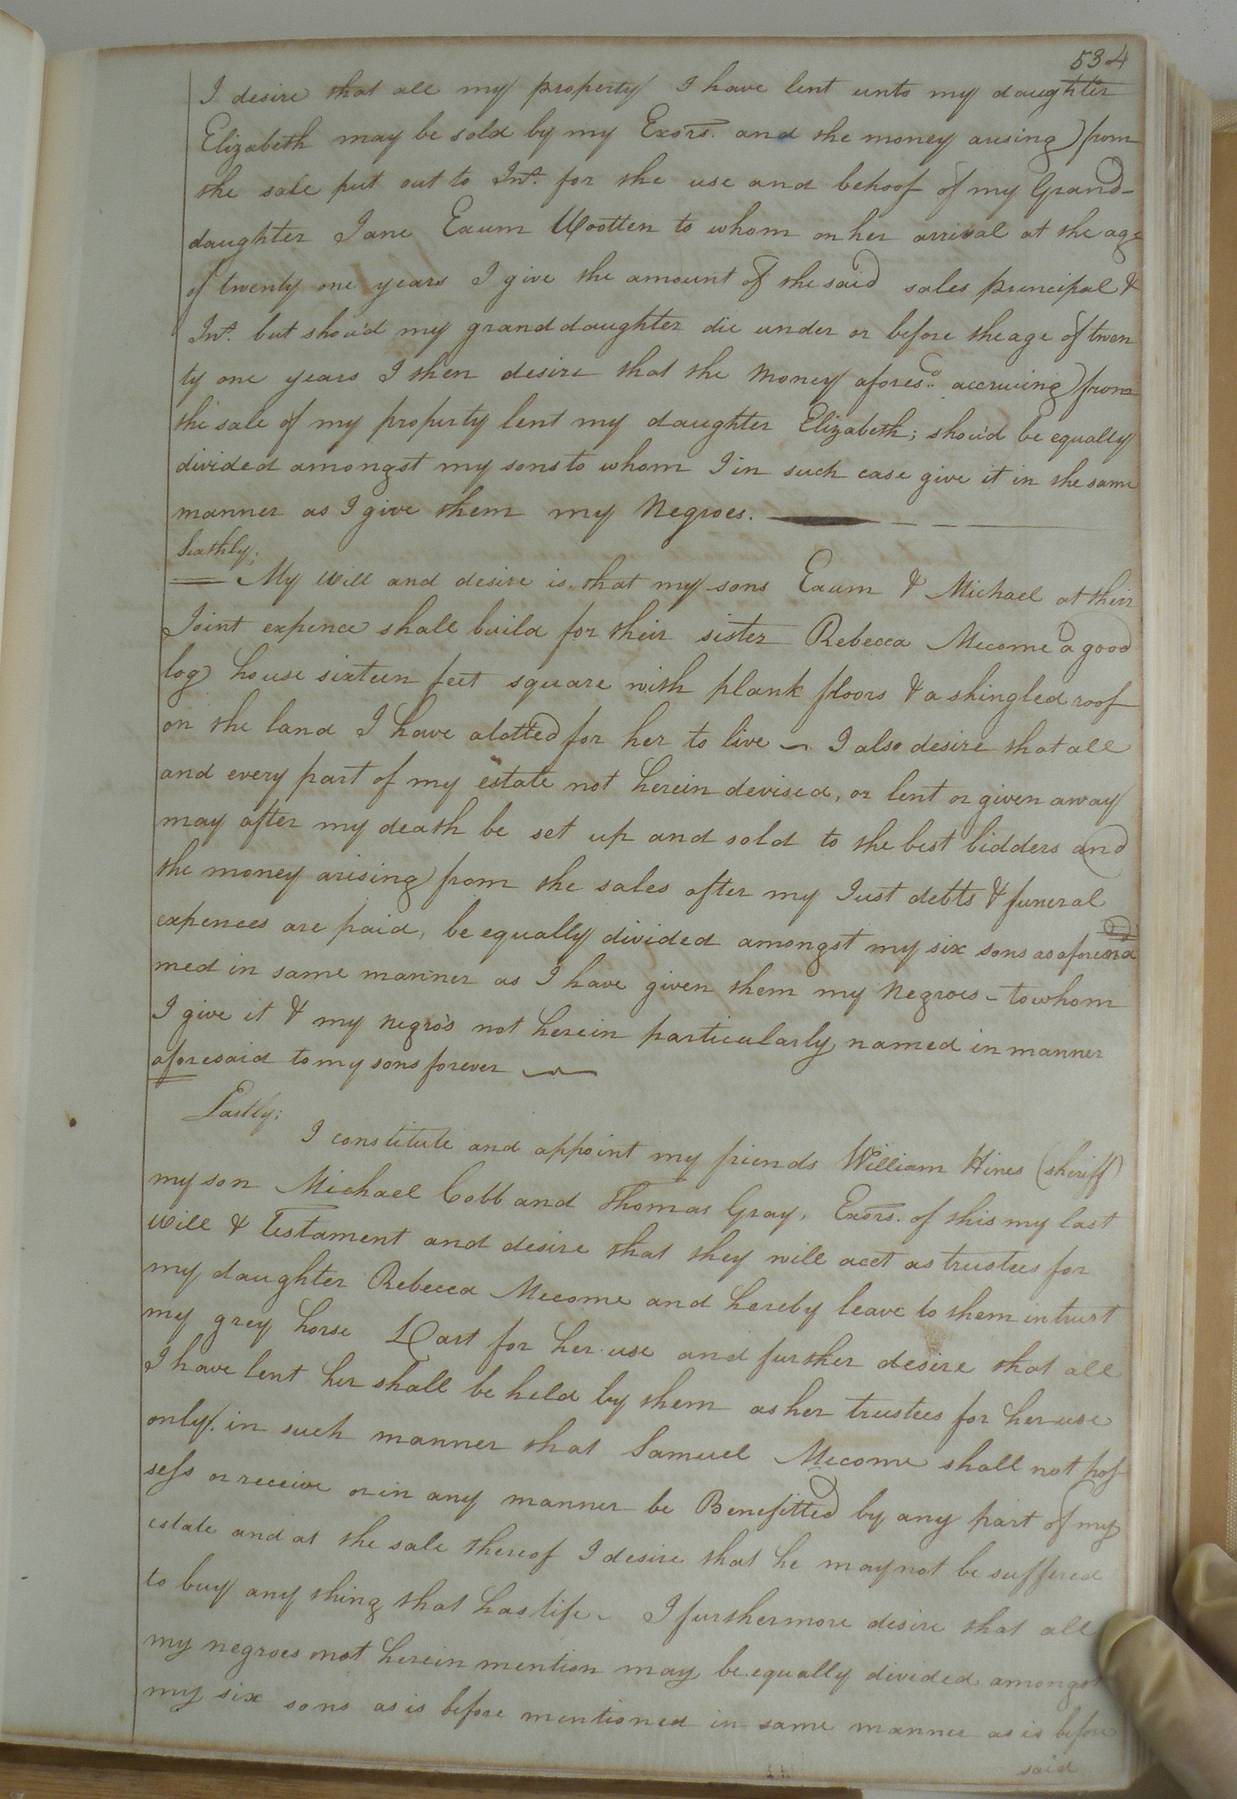 534
I desire that all my property I have lent unto my daughter
Elizabeth may be sold by my Exors. and the money arising from
the sale put out to Int. for the use and behoof of my Grand-
daughter Jane Exum Wootten to whom on her arrival at the age
of twenty one years I give the amount of the said sales principal &
Int. but shou'd my grand daughter die under or before the age of twen
ty one years I then desire that the money afores.d accruing from
the sale of my property lent my daughter Elizabeth; shou'd be equally
divided amongst my sons to whom I in such case give it in the same
manner as I give them my Negroes.
Sixthly;
My Will and desire is that my sons Exum & Michael at their
Joint expence shall build for their sister Rebecca Mecome a good
log house sixteen feet square with plank floors & a shingled roof
on the land I have alotted for her to live ~ I also desire that all
and every part of my estate not herein devised, or lent or given away
may after my death be set up and sold to the best bidders and
the money arising from the sales after my Just debts & funeral
expences are paid, be equally divided amongst my six sons as afore
med in same manner as I have given them my Negroes - to whom
I give it & my negro's not herein particularly named in manner
aforesaid to my sons forever
Lastly;
I constitute and appoint my friends William Hines (sheriff)
my son Michael Cobb and Thomas Gray, Exors. of this my last
Will & Testament and desire that they will act as trustees for
my daughter Rebecca Mecome and hereby leave to them in trust
my grey horse Dart for her use and further desire that all
I have lent her shall be held by them as her trustees for her use
only. in such manner that Samuel Mecome shall not pos
sess or receive or in any manner be Benefitted by any part of my
estate and at the sale thereof I desire that he may not be suffered
to buy any thing that has life - I furthermore desire that all
my negroes not herein mention may be equally divided amongst
my six sons as is before mentioned in same manner as is before
said